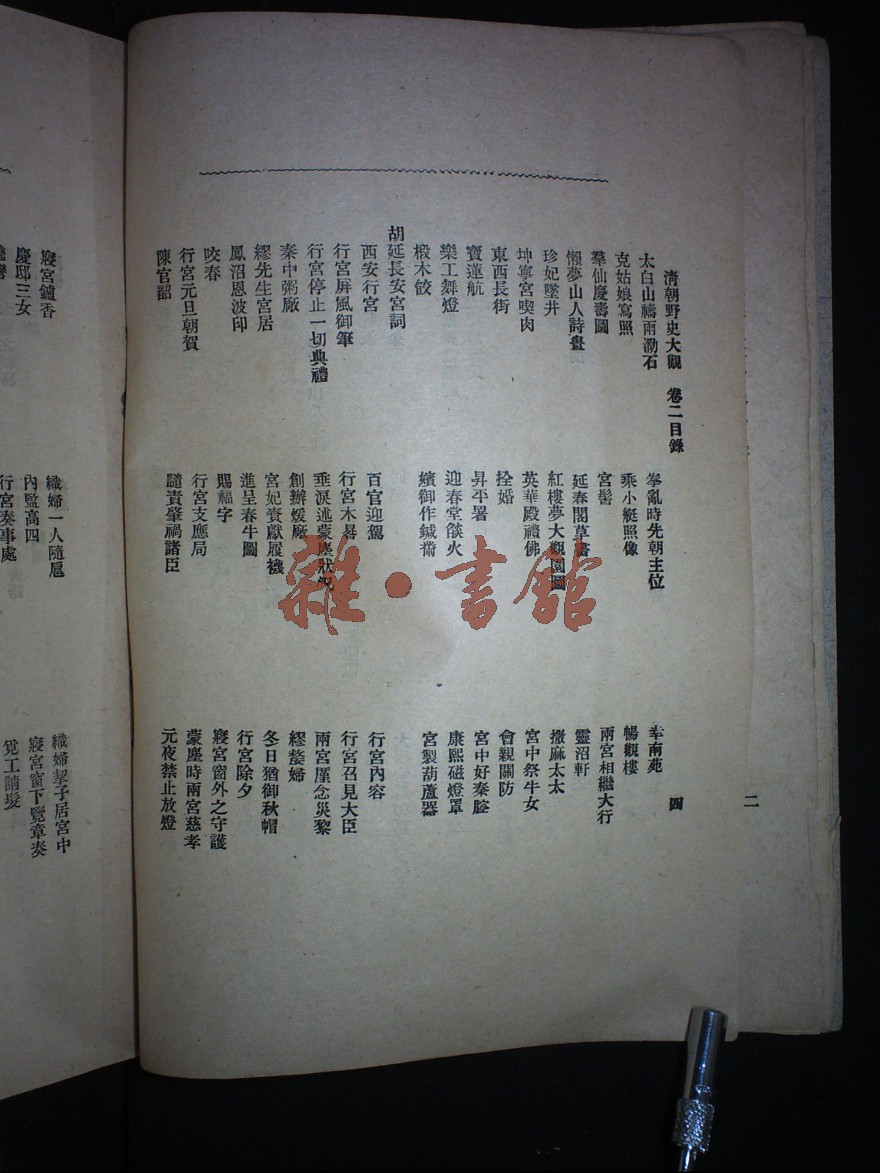 二
清朝野史大觀 卷二目錄 四
太白山禱雨泐石 拳亂時先朝主位 幸南苑
克姑娘寫照 乘小艇照像 暢觀樓
羣仙慶壽圖 宮髻 兩宮相繼大行
懶夢山人詩畫 延春閣草書 靈沼軒
珍妃墜井 紅樓夢大觀園圖 撒麻太太
坤寧宮喫肉 英華殿禮佛 宮中祭牛女
東西長街 拴婚 會親關防
寶蓮航 昇平署 宮中好秦腔
樂工舞燈 迎春堂燄火 康熙磁燈罩
椴木餃 嬪御作鍼黹 宮製葫蘆器
胡延長安宮詞
西安行宮 百官迎駕 行宮內容
行宮屏風御筆 行宮木晷 行宮召見大臣
行宮停止一切典禮 垂淚述蒙塵狀況 兩宮厪念災黎
秦中粥廠 創辦煖廠 繆嫠婦
繆先生宮居 宮妃賚獻履襪 冬日猶御秋帽
鳳沼恩波印 進呈春牛圖 行宮除夕
咬春 賜福字 寢宮窗外之守護
行宮元旦朝賀 行宮支應局 蒙塵時兩宮慈孝
陳官韶 譴責肇禍諸臣 元夜禁止放燈
寢宮鑪香 織婦一人隨扈 織婦挈子居宮中
慶邸三女 內監高四 寢宮窗下覽章奏
行宮奏事處 覓工請髮
雜·書館